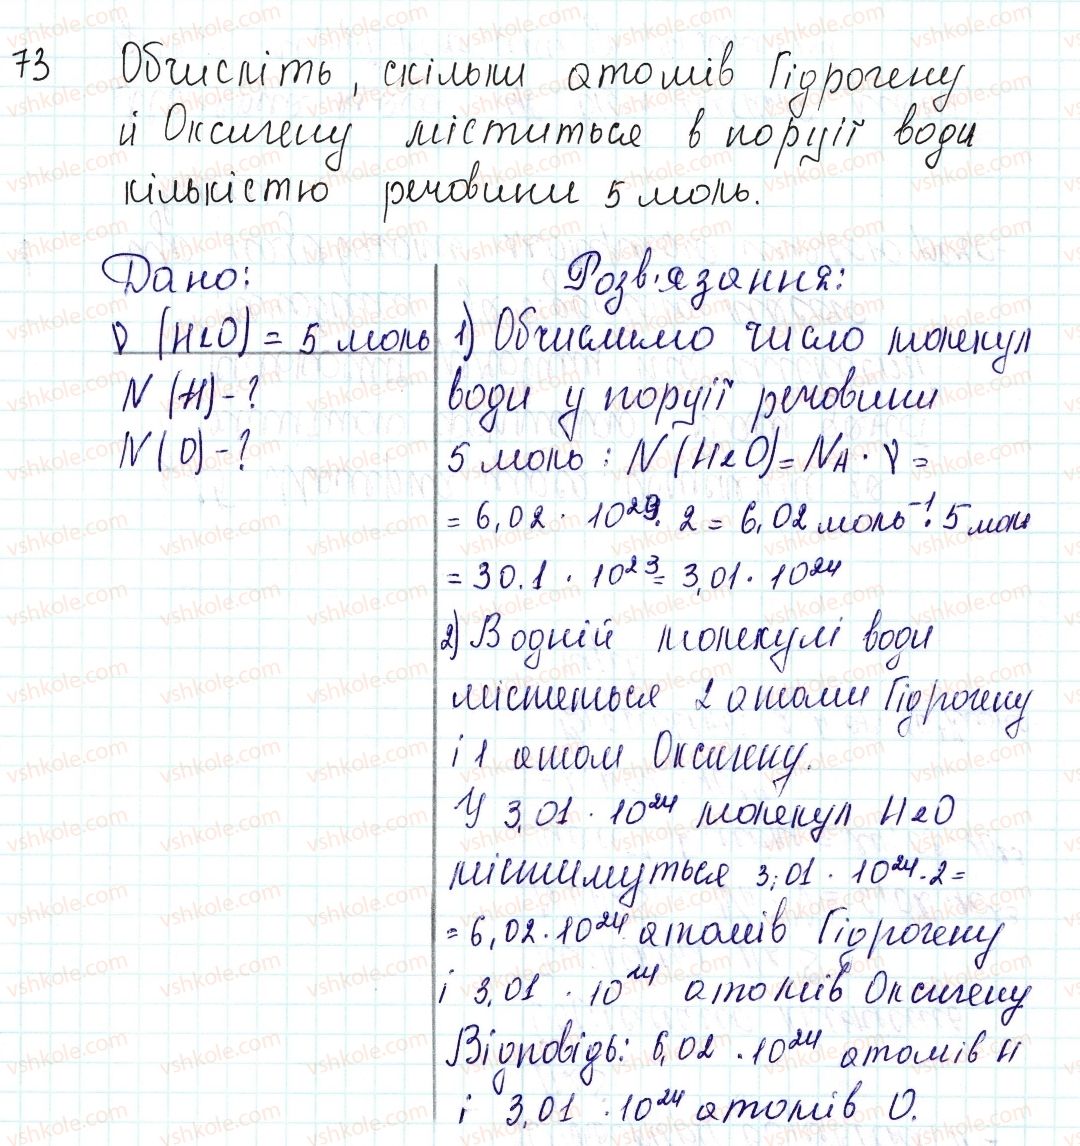 73 Обчисліть, скільки атомів Гідрогену
й Оксигену міститься в порції води
кількістю речовини 5 моль.
Дано:
ν (H2O) = 5 моль
N (H) - ?
N (O) - ?
Розв'язання:
1) Обчислимо число молекул
води у порції речовини
5 моль : N (H2O) = NA · ν =
= 6,02 · 10²³ · 2 = 6,02 моль⁻¹ · 5 моль
= 30.1 · 10²³ = 3,01 · 10²⁴
2) В одній молекулі води
містеться 2 атоми Гідрогену
і 1 атом Оксигену.
У 3,01 · 10²⁴ молекул H2O
міститимуться 3,01 · 10²⁴ · 2 =
= 6,02 · 10²⁴ атомів Гідрогену
і 3,01 · 10²⁴ атомів Оксигену
Відповідь: 6,02 · 10²⁴ атомів H
і 3,01 · 10²⁴ атомів O.